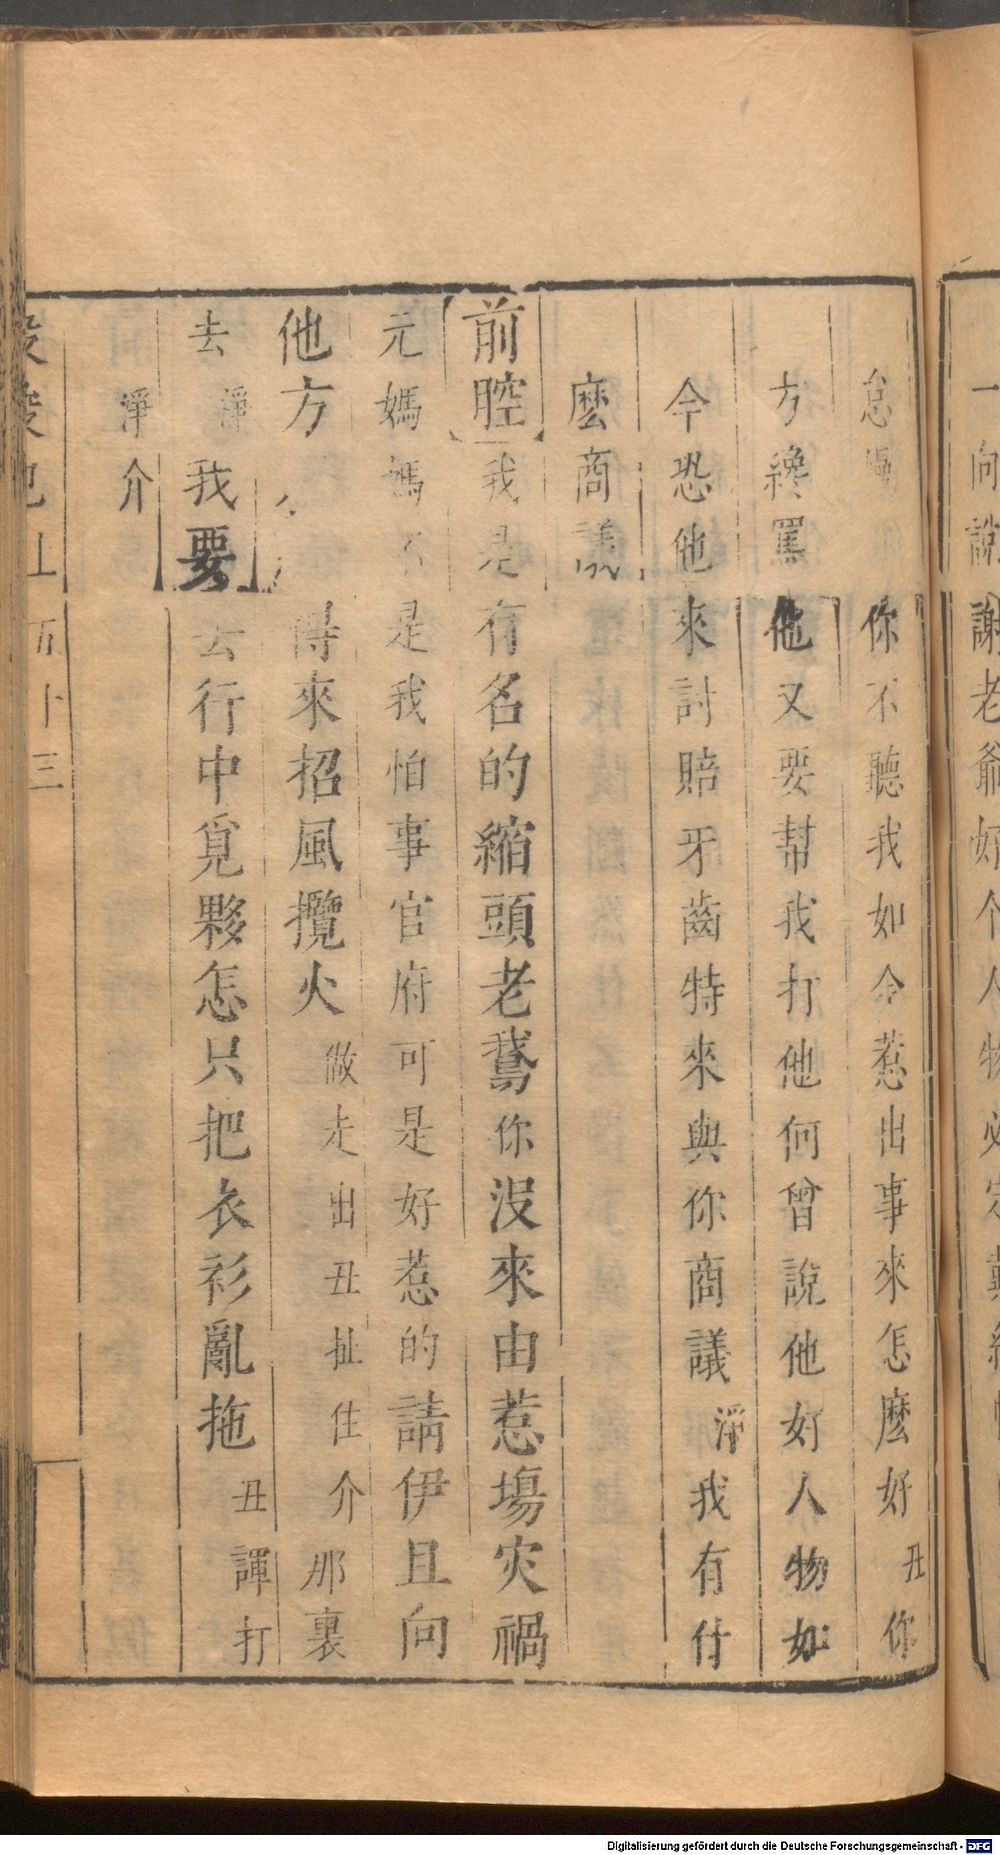 一向說謝老爺好个人物必定
怠你不聽我如今惹出事來怎麼好丑你
方纔罵他又要幇我打他何曾說他好人物如
今恐他來討賠牙齒特來與你商議淨我有什
麼商議
前腔我是有名的縮頭老鵞你沒來由惹塲灾禍
元媽媽不是我怕事官府可是好惹的請伊且向
他方得來招風攬火做走出丑扯住介那裏
去淨我要去行中覓夥怎只把衣衫亂拖丑諢打
淨介
上五十三
Digitalisierung gefördert durch die Deutsche Forschungsgemeinschaft - DFG